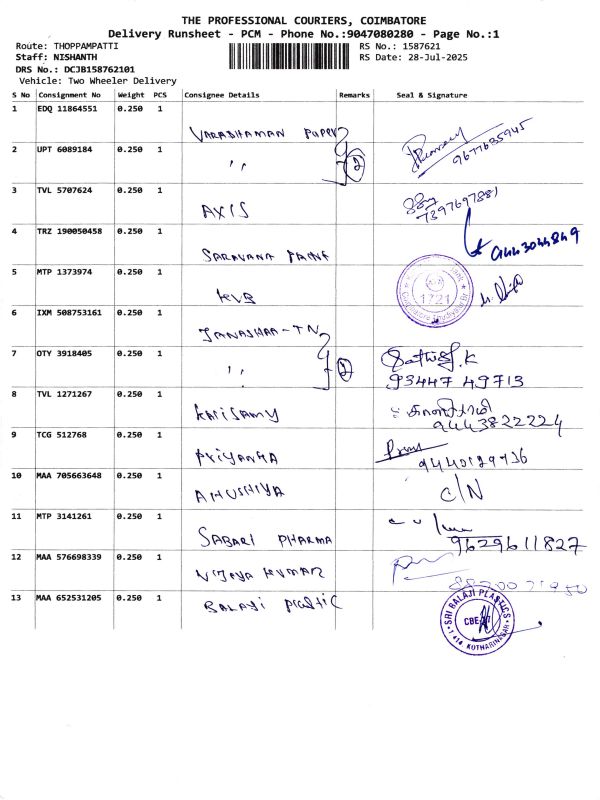 THE PROFESSIONAL COURIERS, COIMBATORE
Delivery Runsheet - PCM - Phone No.:9047080280 - Page No.:1
Route: THOPPAMPATTI RS No.: 1587621
Staff: NISHANTH RS Date: 28-Jul-2025
DRS No.: DCJB158762101
Vehicle: Two Wheeler Delivery
S No Consignment No Weight PCS Consignee Details Remarks Seal & Signature
1 EDQ 11864551 0.250 1 VARADHAMAN 9677635945
2 UPT 6089184 0.250 1 ,, 2
3 TVL 5707624 0.250 1 AXIS 7397697881
4 TRZ 190050458 0.250 1 SARAVANA 9443044849
5 MTP 1373974 0.250 1 KVB 1721
6 IXM 508753161 0.250 1
7 OTY 3918405 0.250 1 ,, 2 Sathish.K
93447 49713
8 TVL 1271267 0.250 1 KALISAMY 9443822224
9 TCG 512768 0.250 1 PRIYANKA
10 MAA 705663648 0.250 1 ANUSHIYA C/N
11 MTP 3141261 0.250 1 SABARI PHARMA 9629611827
12 MAA 576698339 0.250 1 VIJAYA KUMAR
13 MAA 652531205 0.250 1 BALAJI PLASTIC SRI BALAJI PLASTICS